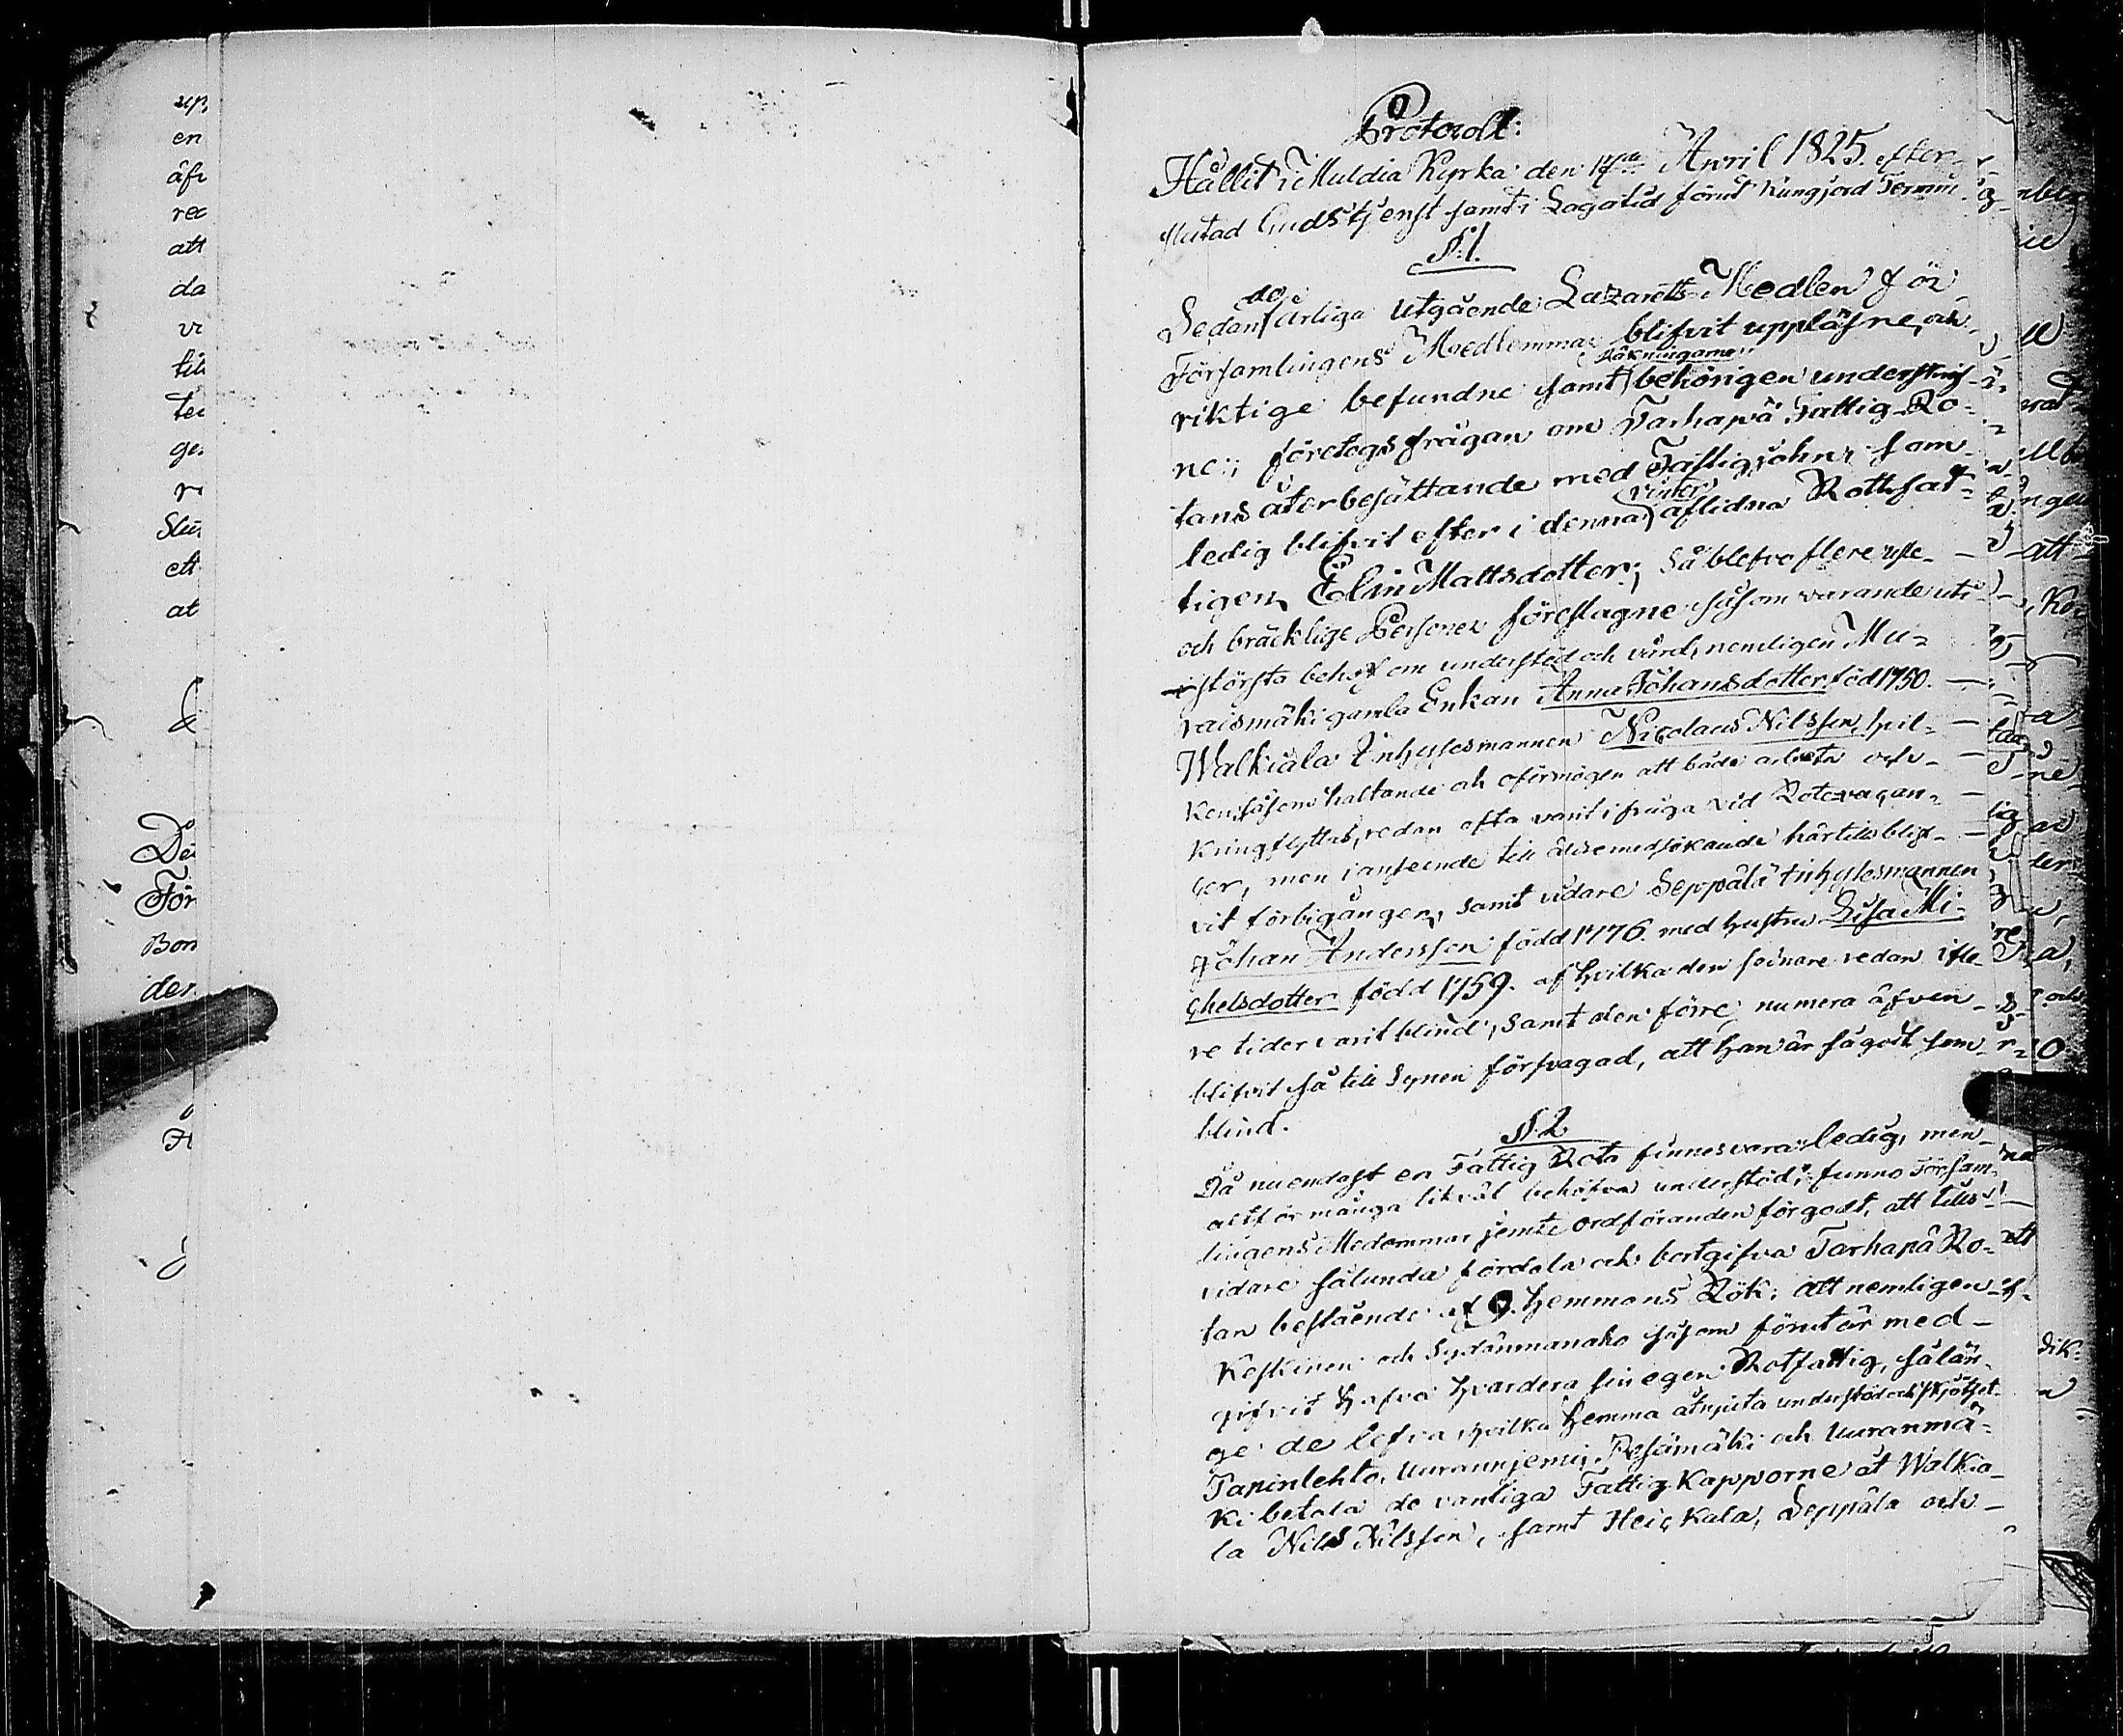 Protocoll:
Hållit i Muldia Kyrka den 17de April 1825. efter
slutad Gudstjenst samt i Lagatid förut kungjord Termin.
§ 1.
Sedan de årliga utgående Lazaretts-Medlen för
Församlingens Medlemmar blifvit uppläsne, och
riktige befundne samt räkningarne behörigen underskrif-
ne; företogs frågan om Tarhapä Fattig-Ro-
tans återbesättande med Fattighjon, som
ledig blifvit efter i denna vinter aflidna Rottfat-
tigen, Elin Mattsdotter; så blefvo flere usle
och bräcklige Personer föreslagne såsom varande uti
största behof om understöd och vård, nemligen Mu-
raismäki gamla Enkan Anna Johansdotter, född 1750.
Walkiala Inhysesmannen Nicolaus Nilsson, hvil-
ken såsom haltande och oförmögen att både arbeta och
kringflyttas, redan ofta varit i fråga vid Rotevacan-
cer, men i anseende till äldre medsökande härtills blif-
vit förbigången, samt vidare Seppälä Inhysesmannen
Johan Andersson född 1776. med hustru Lisa Mi-
chelsdotter född 1759. af hvilka den sednare redan i fle-
re tider varit blind, samt den förre numera äfven
blifvit så till Synen försvagad, att han är så godt som
blind.
§ 2
Då nu endast en Fattig Rota finnes vara ledig, men
altför många likväl behöfva understöd; funno Försam-
lingens Medlemmar jemte ordföranden för godt, att tills
vidare sålunda fördela och bortgifva Tarhapä Ro-
tan bestående af 9. hemmans Rök; att nemligen
Keskinen och Sydänmanaho såsom förut är med-
gifvit hafva hvardera sin egen Rotfattig, sålän-
ge de lefva, hvilka hemma åtnjuta understöd och skjötsel.
Papinlehto, Uurannjemi, Pesämäki och Uuranmä-
ki betala de vanliga Fattig Kapporne åt Walkia-
la Nils Nilsson, samt Heickala, Seppäla och